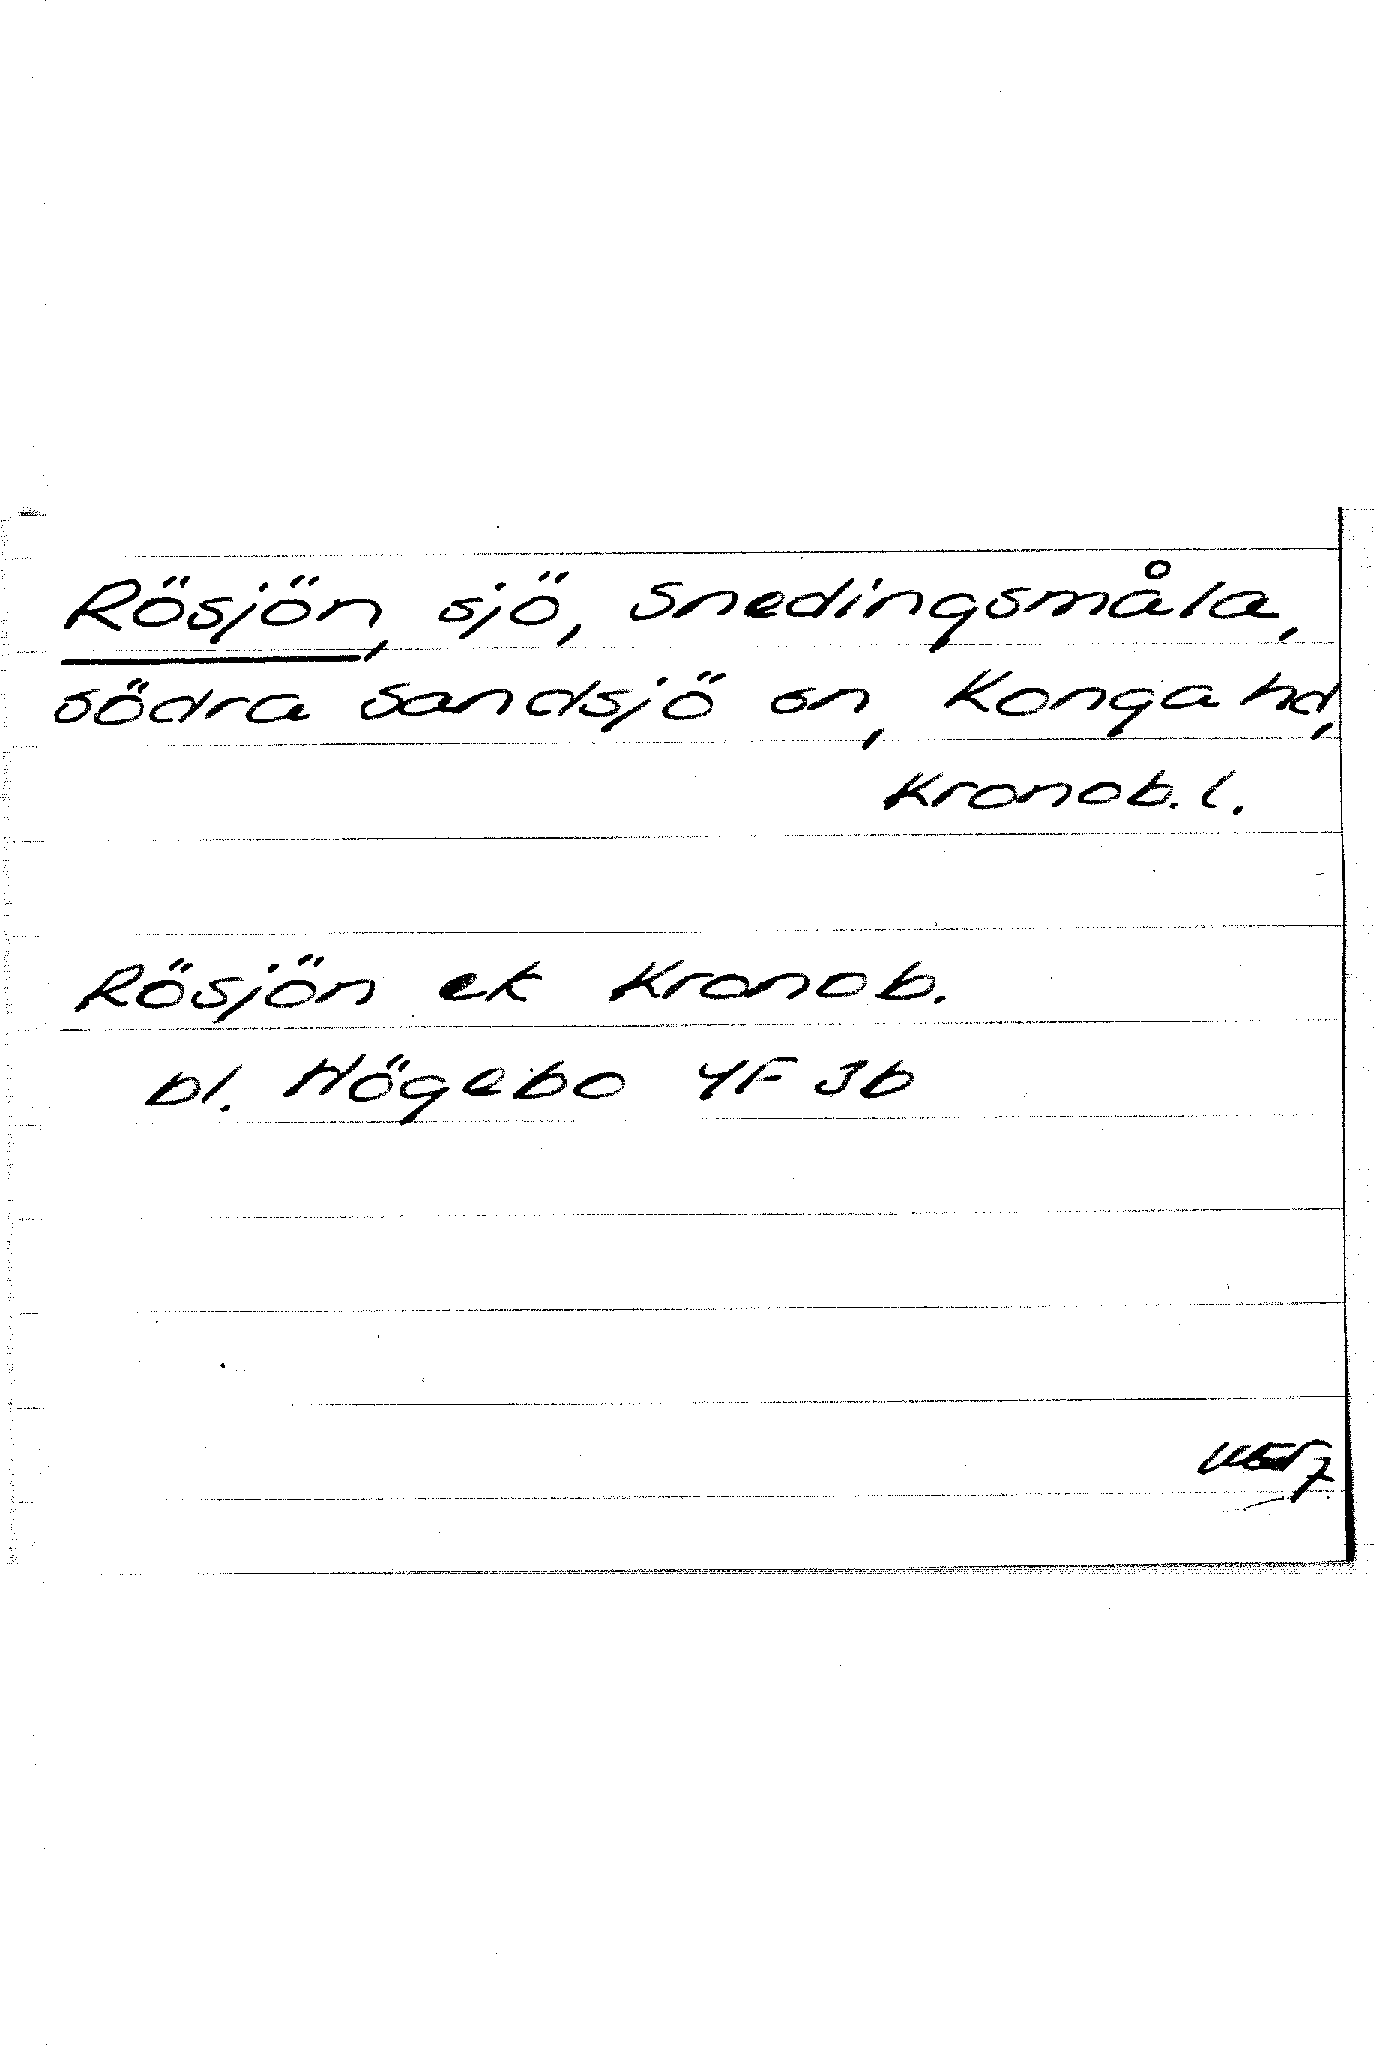 Rösjön, sjö, Snedingsmåla,
södra Sandsjö sn, Konga hd,
Kronob. l.
Rösjön ek Kronob.
bl. Högebo 4F 3b